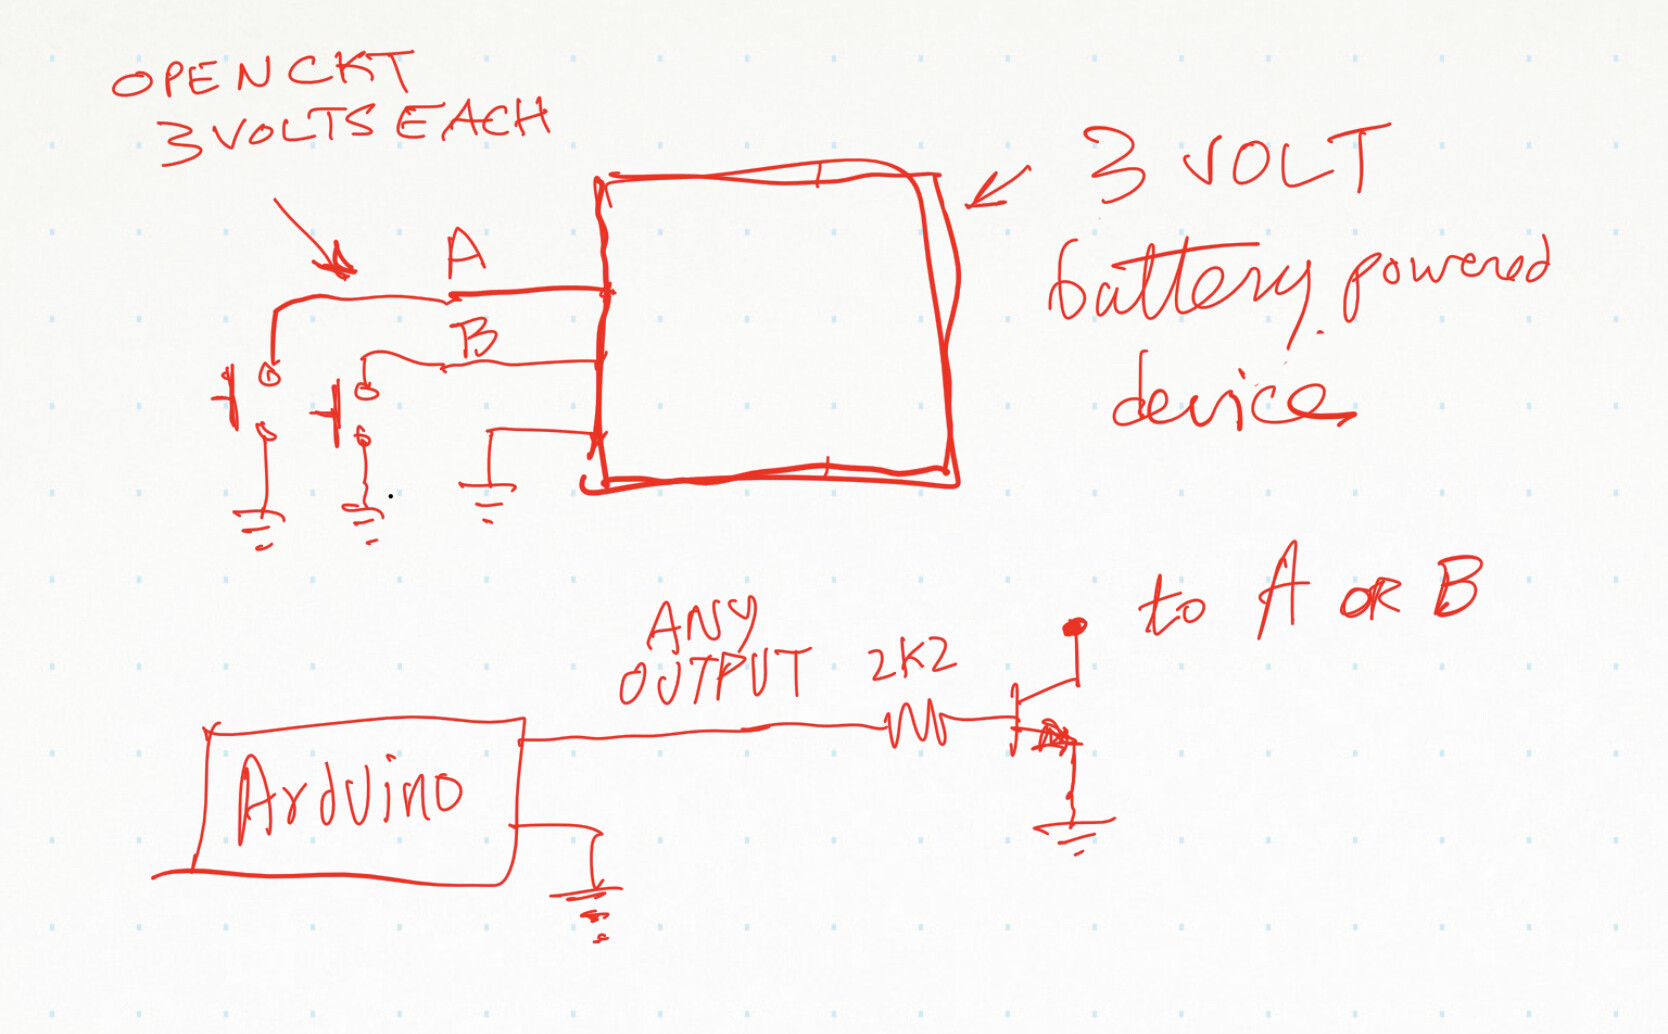 OPEN CKT
3 VOLTS EACH
3 VOLT
battery powered
device
A
B
to A OR B
ANY
OUTPUT 2K2
Arduino